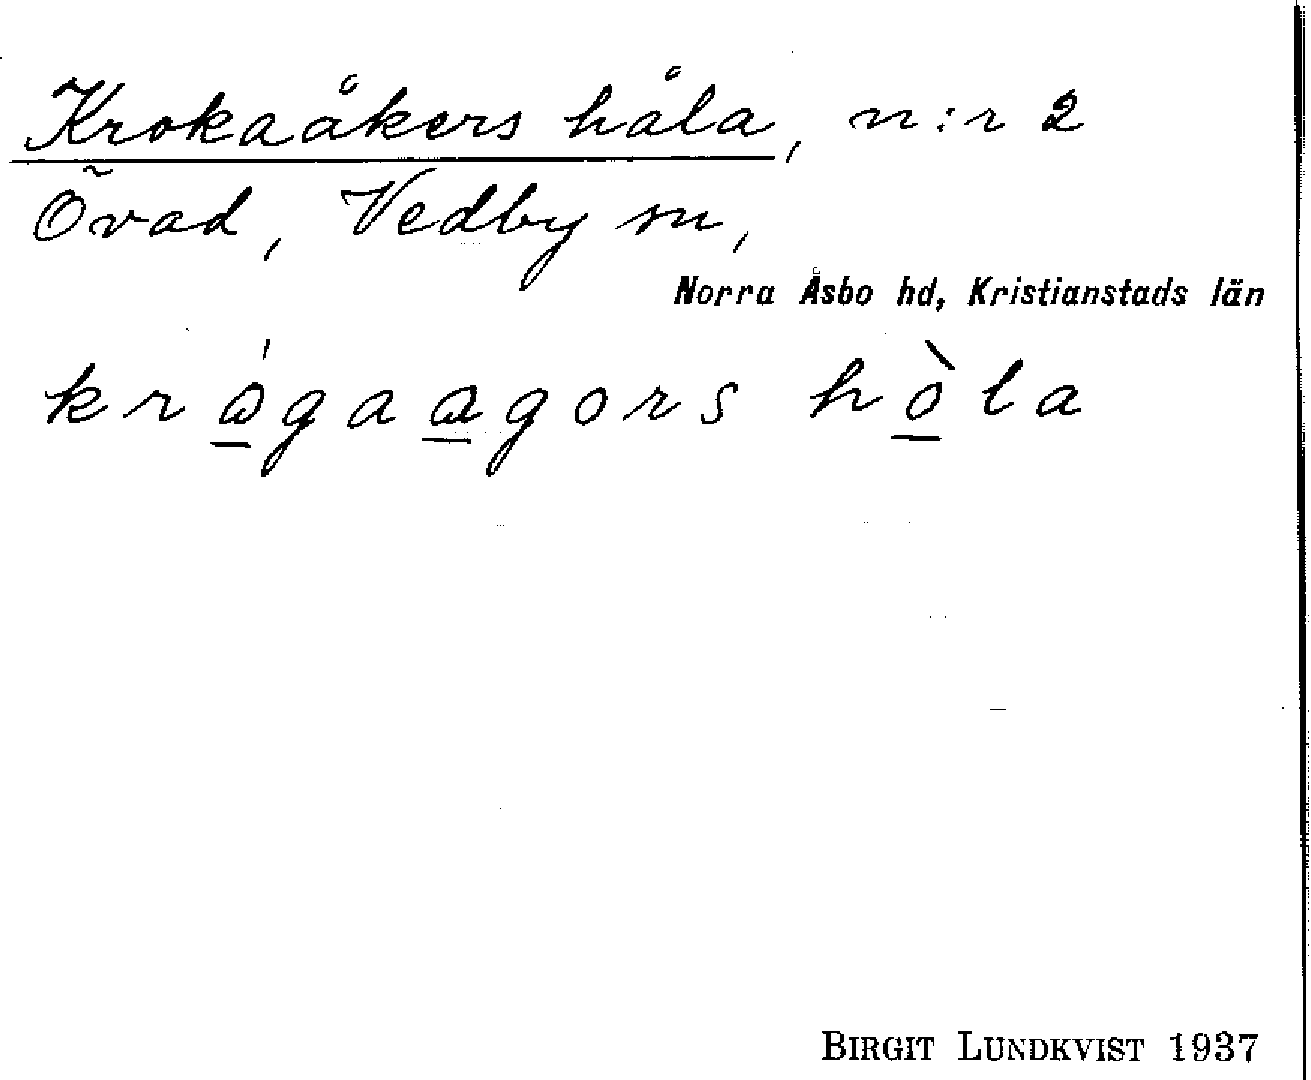 Krokaåkers håla, n:r 2
Övad, Vedby sn,
Norra Åsbo hd, Kristianstads län
krɷ́gaagors hòla
BIRGIT LUNDKVIST 1937